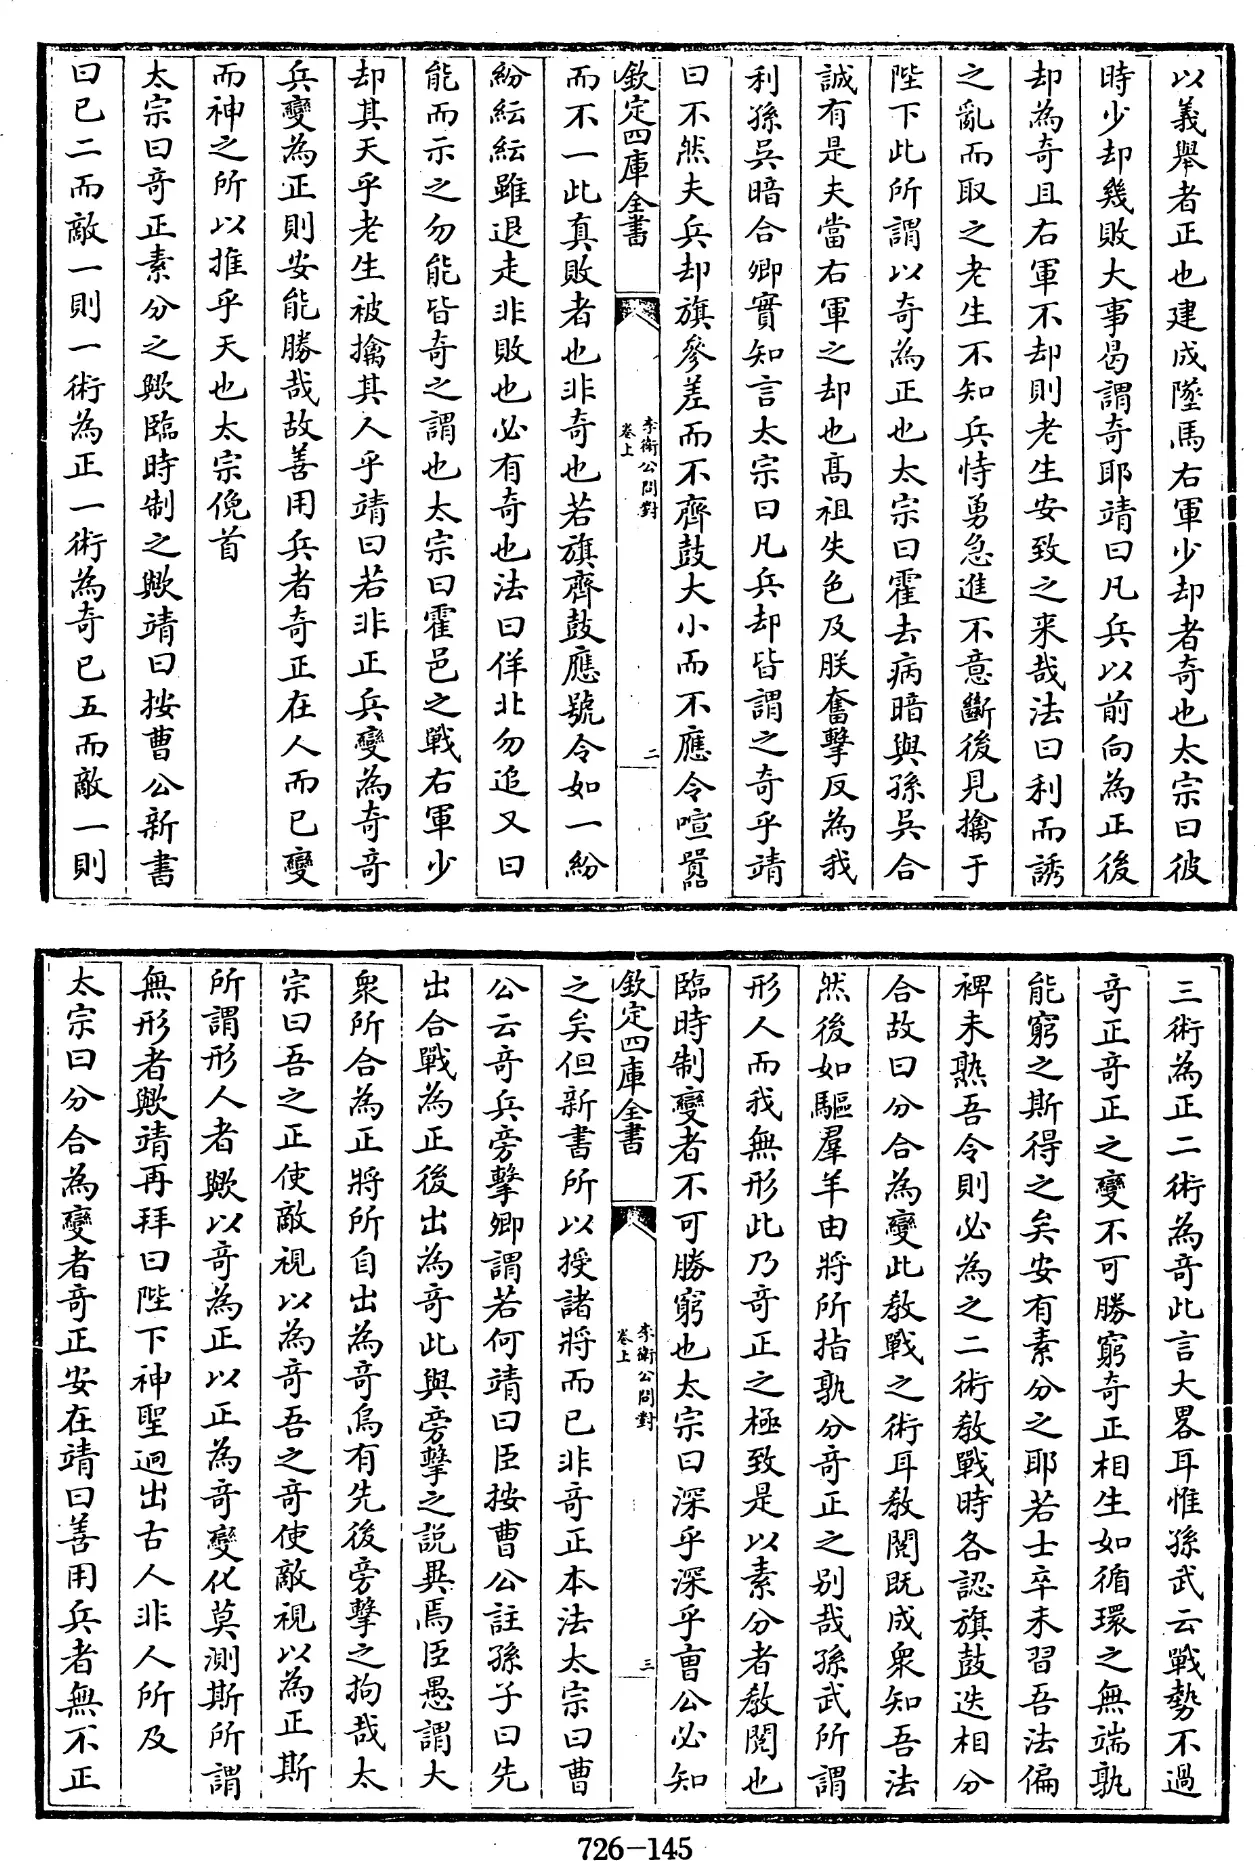 以義舉者正也建成墜馬右軍少却者奇也太宗曰彼
時少却幾敗大事曷謂奇耶靖曰凡兵以前向為正後
却為奇且右軍不却則老生安致之来哉法曰利而誘
之亂而取之老生不知兵恃勇急進不意斷後見擒于
陛下此所謂以奇為正也太宗曰霍去病暗與孫吳合
誠有是夫當右軍之却也髙祖失色及朕奮擊反為我
利孫吳暗合卿實知言太宗曰凡兵却皆謂之奇乎靖
曰不然夫兵却旗參差而不齊鼓大小而不應令喧囂
欽定四庫全書
李衛公問對
卷上
二
而不一此真敗者也非奇也若旗齊鼓應號令如一紛
紛紜紜雖退走非敗也必有奇也法曰佯北勿追又曰
能而示之勿能皆奇之謂也太宗曰霍邑之戰右軍少
却其天乎老生被擒其人乎靖曰若非正兵變為奇奇
兵變為正則安能勝哉故善用兵者奇正在人而已變
而神之所以推乎天也太宗俛首
太宗曰奇正素分之歟臨時制之歟靖曰按曹公新書
曰已二而敵一則一術為正一術為奇已五而敵一則
三術為正二術為奇此言大畧耳惟孫武云戰勢不過
奇正奇正之變不可勝窮奇正相生如循環之無端孰
能窮之斯得之矣安有素分之耶若士卒未習吾法偏
裨未熟吾令則必為之二術教戰時各認旗鼓迭相分
合故曰分合為變此教戰之術耳教閱既成衆知吾法
然後如驅羣羊由將所指孰分奇正之别哉孫武所謂
形人而我無形此乃奇正之極致是以素分者教閱也
臨時制變者不可勝窮也太宗曰深乎深乎曹公必知
欽定四庫全書
李衛公問對
卷上
三
之矣但新書所以授諸將而已非奇正本法太宗曰曹
公云奇兵旁擊卿謂若何靖曰臣按曹公註孫子曰先
出合戰為正後出為奇此與旁擊之説異焉臣愚謂大
衆所合為正將所自出為奇烏有先後旁擊之拘哉太
宗曰吾之正使敵視以為奇吾之奇使敵視以為正斯
所謂形人者歟以奇為正以正為奇變化莫測斯所謂
無形者歟靖再拜曰陛下神聖迥出古人非人所及
太宗曰分合為變者奇正安在靖曰善用兵者無不正
726-145